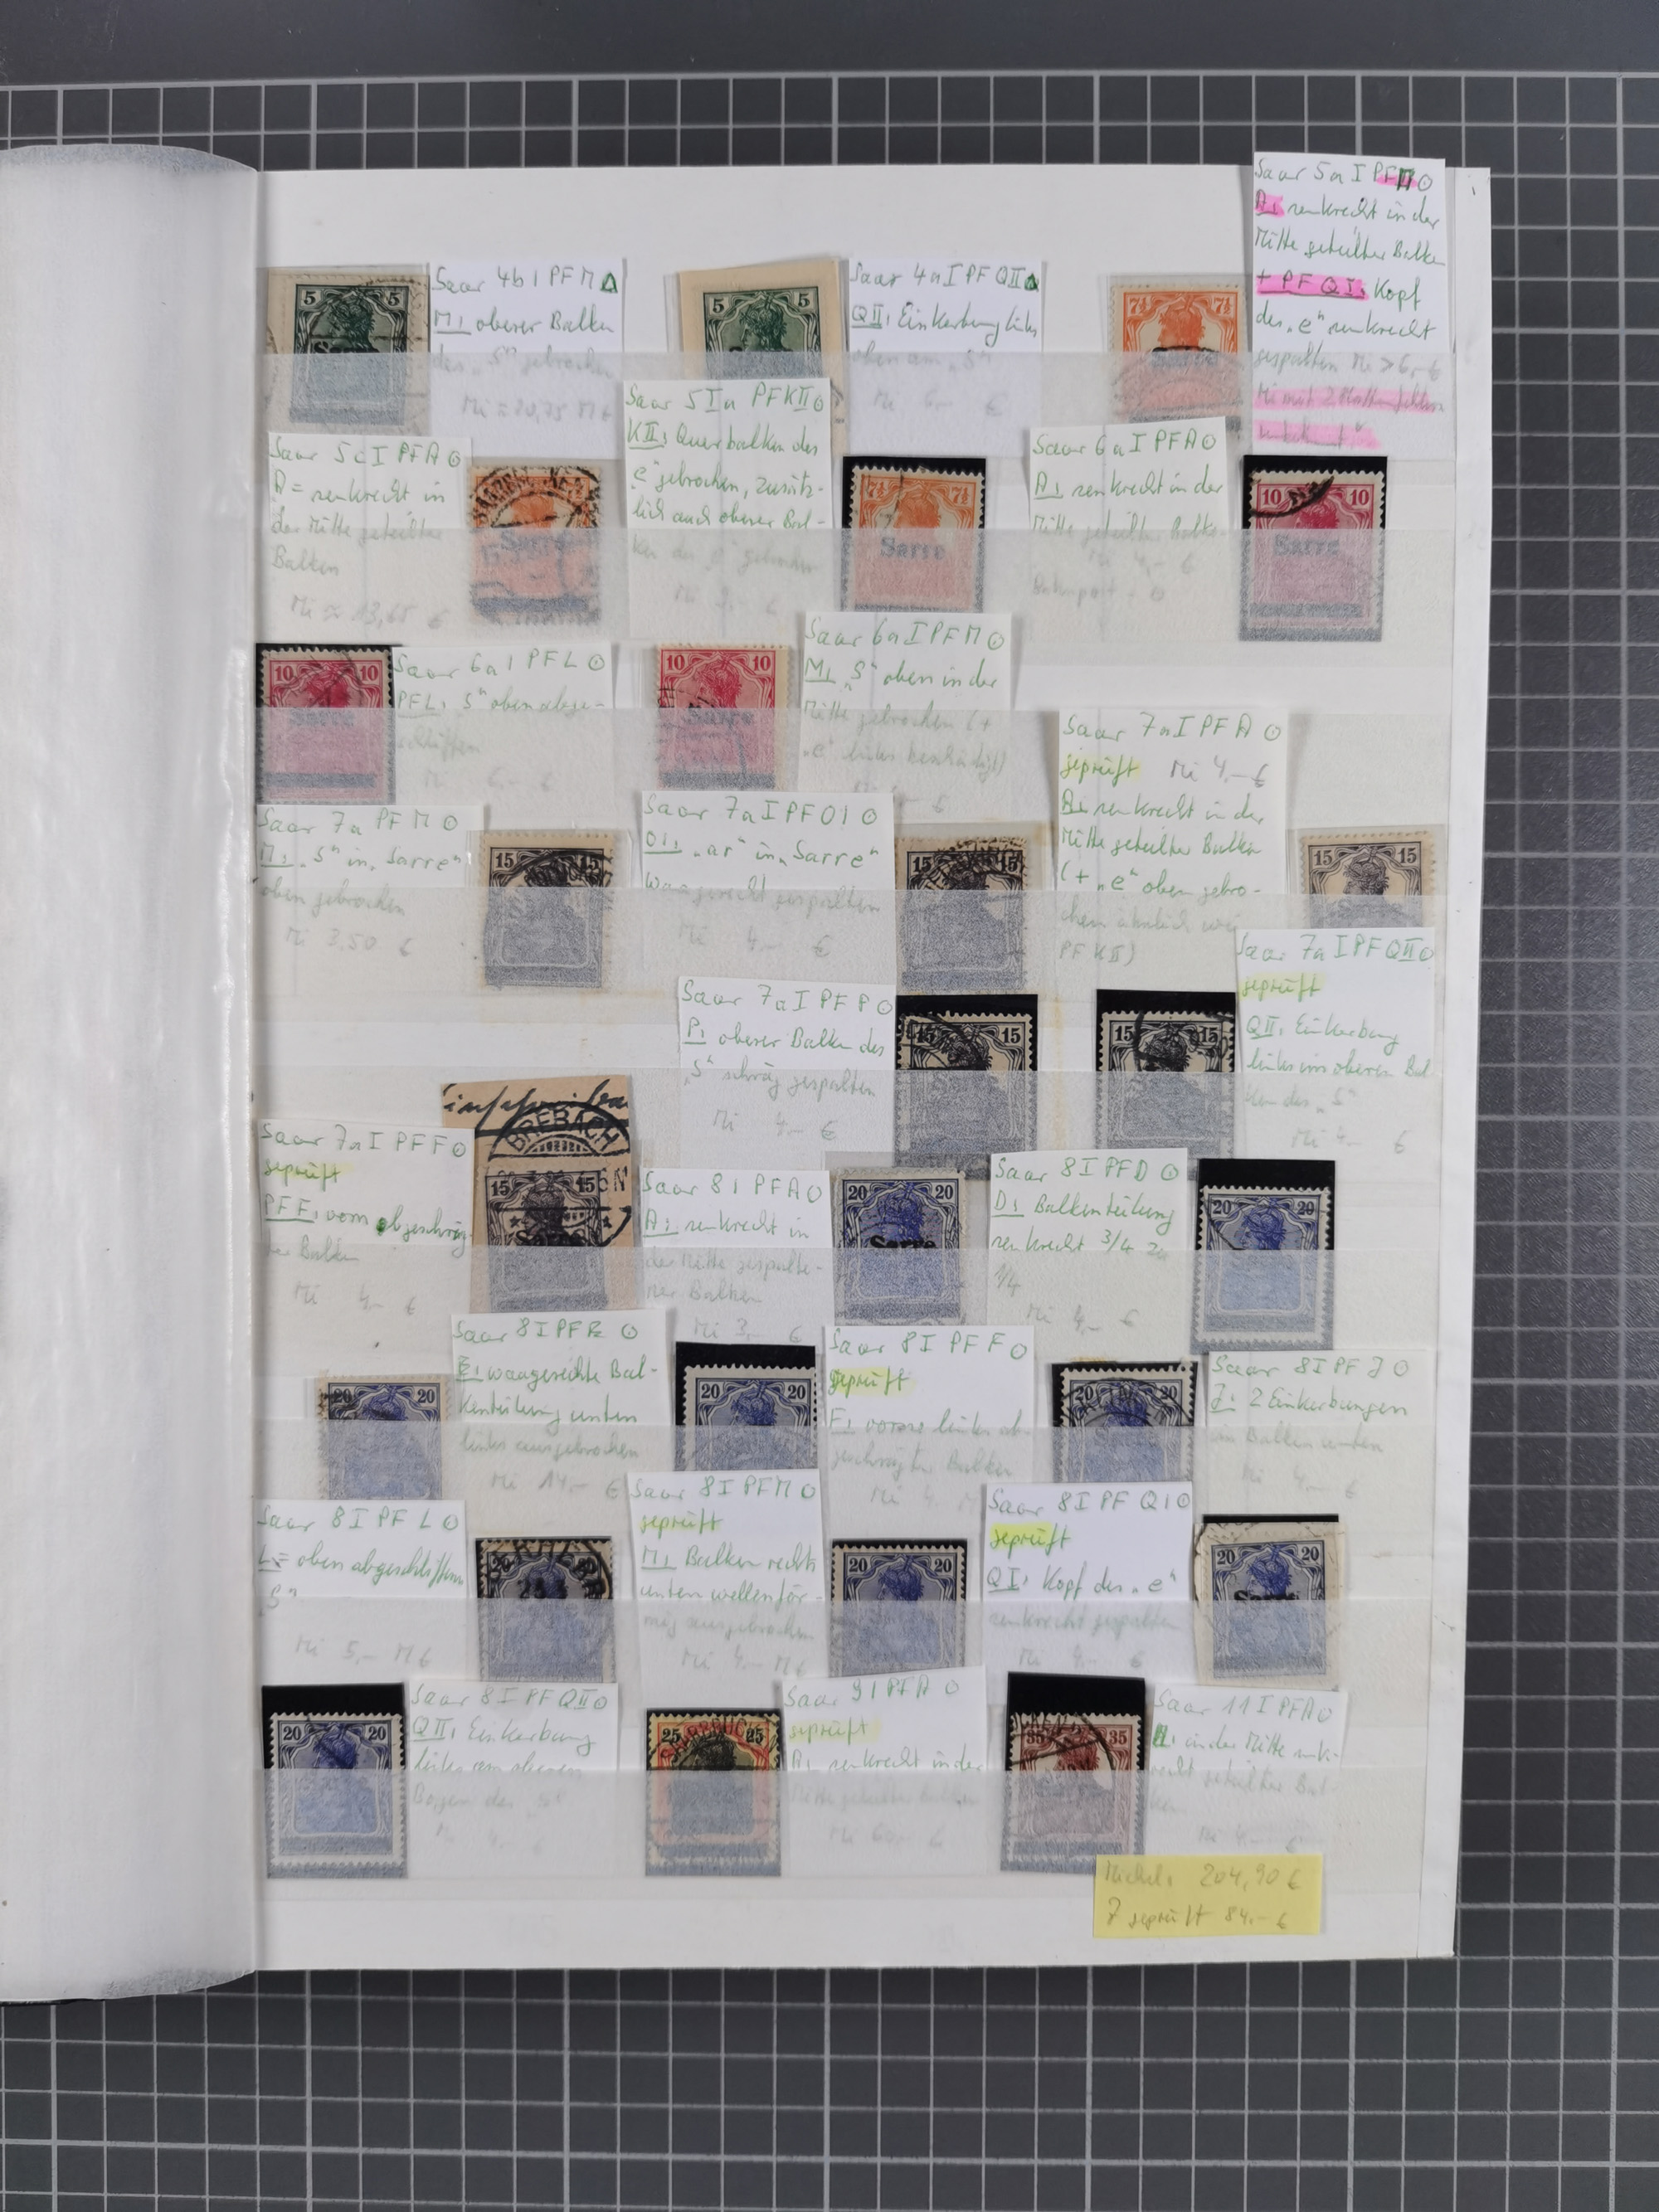 Saar 5a I PF A ⊙
A: senkrecht in der
Mitte geteilter Balken
+ PF QI: Kopf
des „e" senkrecht
gespalten Mi > 6,- €
Mi mit 2 Plattenfehlern
unbekannt
5 5
Saar 4b I PF M △
M: oberer Balken
des „S" gebrochen
Mi = 20,75 M €
5 5
Saar 4a I PF QII △
QII: Einkerbung links
oben am „S"
Mi 6,- €
7½ 7½
Sarre
Saar 5c I PF A ⊙
A = senkrecht in
der Mitte geteilter
Balken
Mi = 13,65 €
7½
Sarre
Saar 5 I a PF KII ⊙
KII: Querbalken des
„e" gebrochen, zusätz-
lich auch oberer Bal-
ken des „e" gebrochen
Mi €
7½ 7½
Sarre
Saar 6a I PF A ⊙
A: senkrecht in der
Mitte geteilter Balken
Mi 4,- €
Bahnpost - ⊙
10 10
Sarre
10 10
Sarre
Saar 6a I PF L ⊙
PF L: S" oben abge-
schliffen
Mi 6,- €
10 10
Sarre
Saar 6a I PF M ⊙
M: „S" oben in der
Mitte gebrochen (+
„e" links beschädigt)
€
Saar 7a I PF A ⊙
geprüft Mi 4,- €
A: senkrecht in der
Mitte geteilter Balken
(+ „e" oben gebro-
chen ähnlich wie
PF KII)
15 15
Sarre
Saar 7a PF M ⊙
M: „S" in „Sarre"
oben gebrochen
Mi 3,50 €
15 15
Saar 7a I PF OI ⊙
OI: „ar" in „Sarre"
waagerecht gespalten
Mi 4,- €
15 15
Saar 7a I PF P ⊙
P: oberer Balken des
„S" schräg gespalten
Mi 4,- €
15 15
15 15
Saar 7a I PF QII ⊙
geprüft
QII: Einkerbung
links im oberen Bal-
ken des „S"
Mi 4,- €
Saar 7a I PF F ⊙
geprüft
PF F: vorn abgeschräg-
ter Balken
Mi 4,- €
BREBACH
15 15
Sarre
Saar 8 I PF A ⊙
A: senkrecht in
der Mitte gespalte-
ner Balken
Mi 3,- €
20 20
Sarre
Saar 8 I PF D ⊙
D: Balkenteilung
senkrecht 3/4 zu
1/4
Mi 4,- €
20 20
20 20
Saar 8 I PF E ⊙
E: waagerechte Bal-
kenteilung unten
links ausgebrochen
Mi 14,- €
20 20
Saar 8 I PF F ⊙
geprüft
F: vorne links ab-
geschrägter Balken
Mi 4,
20 20
Saar 8 I PF J ⊙
J: 2 Einkerbungen
im Balken unten
Mi 4,- €
Saar 8 I PF L ⊙
L = oben abgeschliffenes
„S"
Mi 5,- M €
20
Saar 8 I PF M ⊙
geprüft
M: Balken rechts
unten wellenför-
mig ausgebrochen
Mi 4,- M €
20 20
Saar 8 I PF QI ⊙
geprüft
QI: Kopf des „e"
senkrecht gespalten
Mi 4,- €
20 20
Sarre
20 20
Saar 8 I PF QII ⊙
QII: Einkerbung
links am oberen
Bogen des „S"
4,- €
25 25
Saar 9 I PF A ⊙
geprüft
A: senkrecht in der
Mitte geteilter Balken
Mi €
35 35
Saar 11 I PF A ⊙
A: in der Mitte senk-
recht geteilter Bal-
ken
Mi 4,- €
Michel: 204,90 €
7 geprüft 84,- €